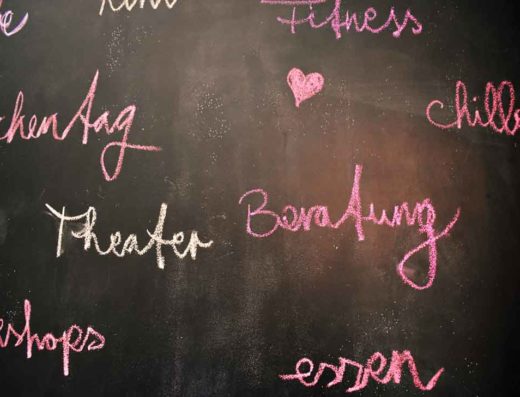 Fitness
chentag
chill
Theater Beratung
shops
essen